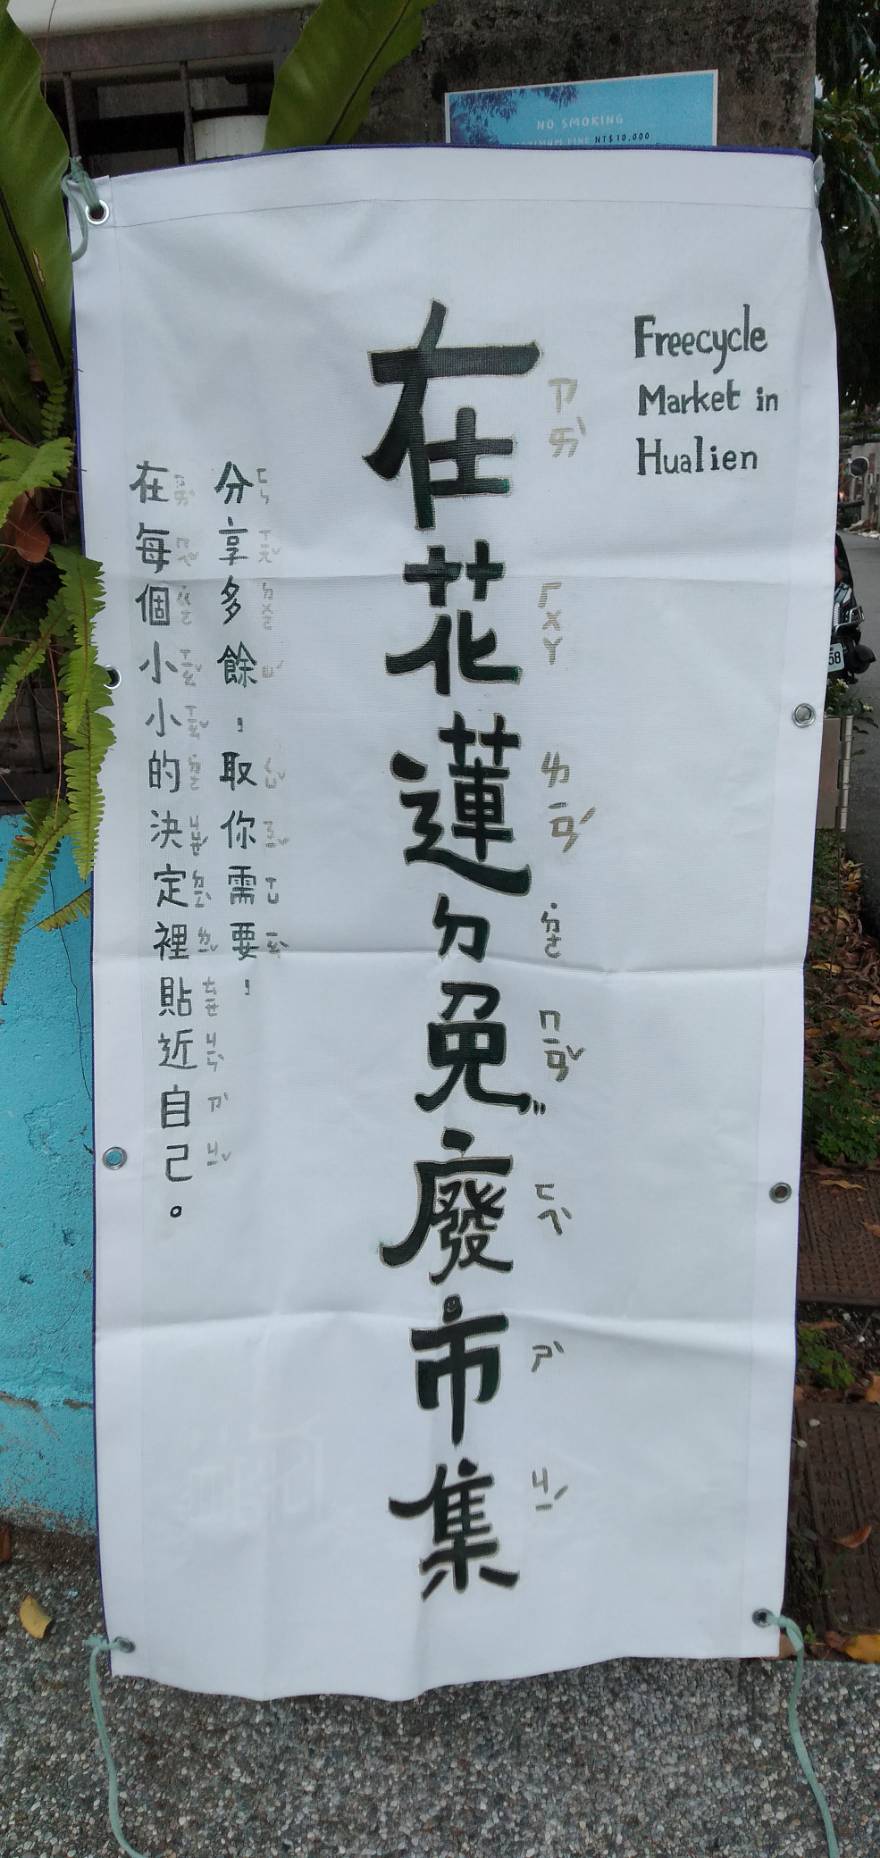 NO SMOKING
NT$10,000
Freecycle
Market in
Hualien
在花蓮ㄉ免廢市集
ㄗㄞˋ
ㄏㄨㄚ
ㄌㄧㄢˊ
˙ㄉㄜ
ㄇㄧㄢˇ
ㄈㄟˋ
ㄕˋ
ㄐㄧˊ
分享多餘，取你需要，
在每個小小的決定裡貼近自己。
58